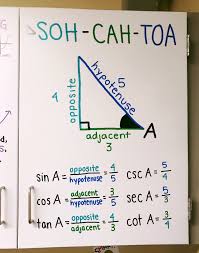 SOH-CAH-TOA
4
opposite
hypotenuse
5
adjacent
3
A
sin A = opposite/hypotenuse = 4/5 csc A = 5/4
cos A = adjacent/hypotenuse = 3/5 sec A = 5/3
tan A = opposite/adjacent = 4/3 cot A = 3/4